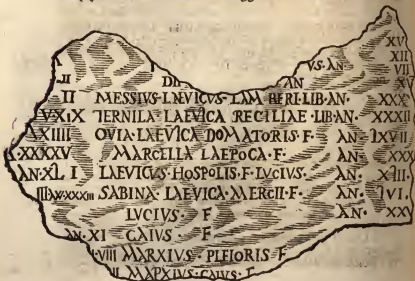 XV
XII
V S · AN · VII
II DII AN XV
II MESSIVS · LAEVICVS · LAM BERI · LIB · AN · XXX
VX · X TERNILA · LAEVICA RECILIAE · LIB · AN · XXXII
XIIII OVIA · LAEVICA DOMATORIS · F · AN · IXVII
XXXXV MARCELLA LAEPOCA · F · AN · XXX
AN · XL I LAEVICVS · HOSPOLIS · F · LVCIVS · AN · XIII
III AN · XXXIII SABINA · LAEVICA · MERCII · F · AN · IVI
LVCIVS · F AN · XX
AN · XI CAIVS · F
VIII MARXIVS · PLEIORIS · F
II MAPXIVS · CAIVS · F